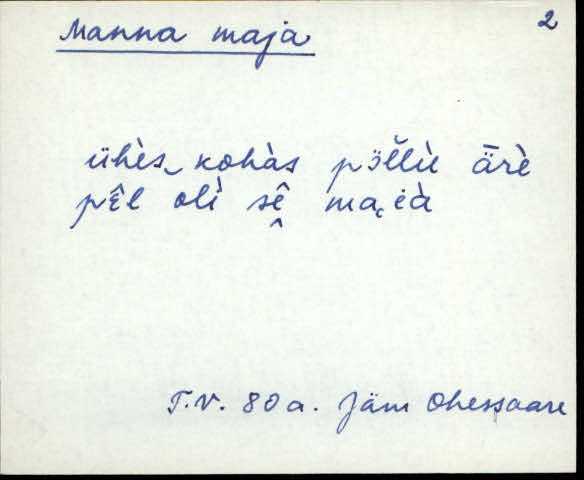 Manna maja
2
ühès kohàs pö̆llǜ ǟrè
pēl olì sê maià
T.V. 80 a. Jäm Ohessaare